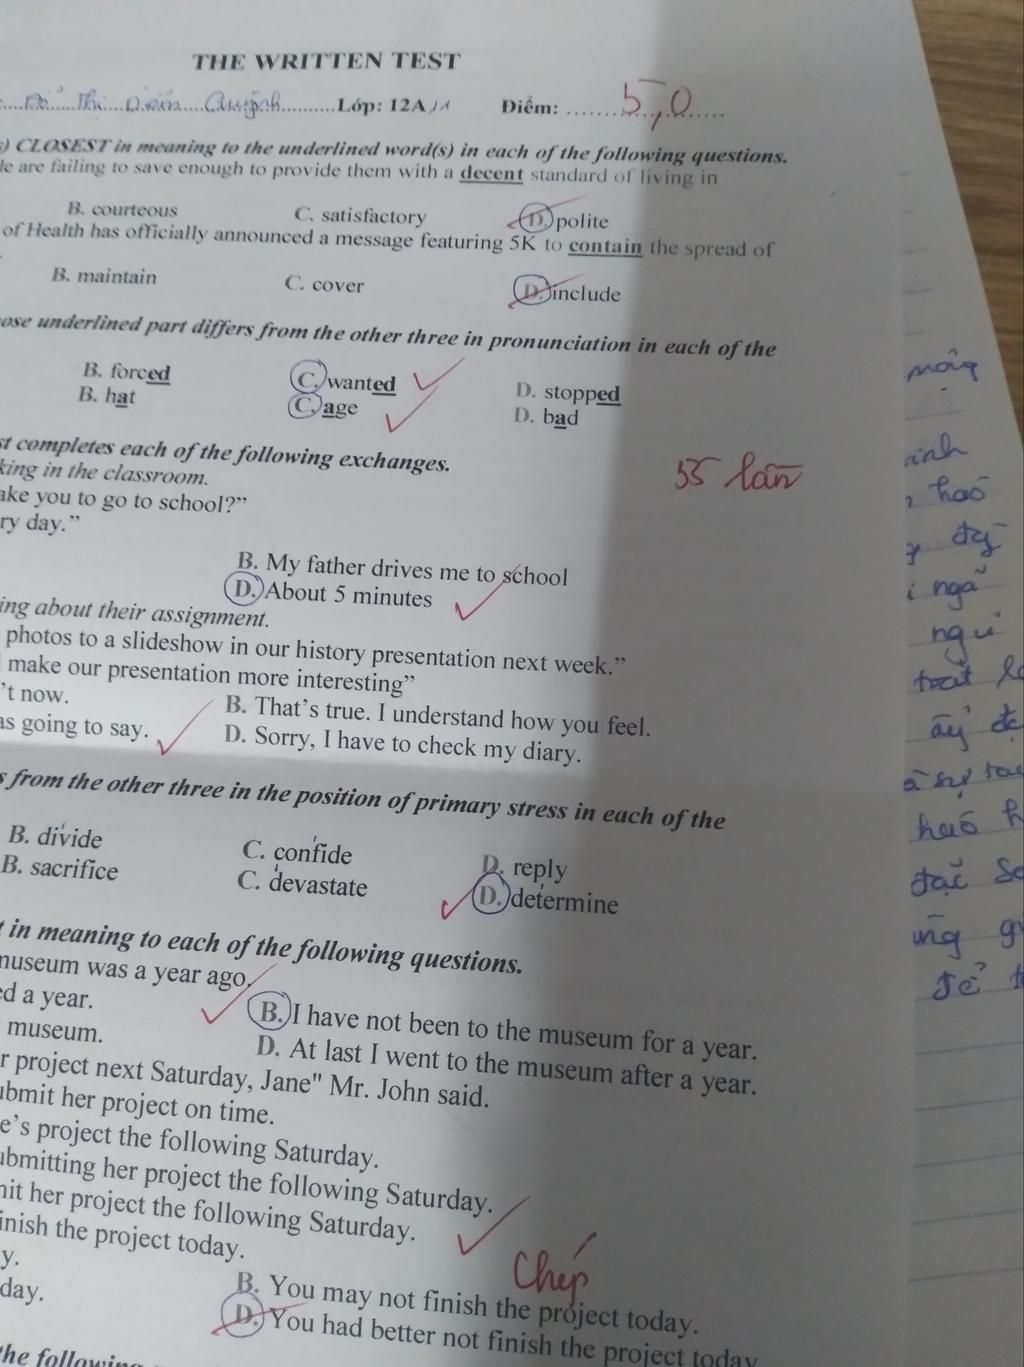 THE WRITTEN TEST
Diễm Quỳnh Lớp: 12A11 Điểm: 5,0
CLOSEST in meaning to the underlined word(s) in each of the following questions.
are failing to save enough to provide them with a decent standard of living in
B. courteous C. satisfactory D. polite
of Health has officially announced a message featuring 5K to contain the spread of
B. maintain C. cover D. include
underlined part differs from the other three in pronunciation in each of the
B. forced C. wanted D. stopped
B. hat C. age D. bad
completes each of the following exchanges.
in the classroom.
55 lần
you to go to school?”
day.”
B. My father drives me to school
D. About 5 minutes
about their assignment.
photos to a slideshow in our history presentation next week.”
make our presentation more interesting”
’t now. B. That’s true. I understand how you feel.
going to say. D. Sorry, I have to check my diary.
from the other three in the position of primary stress in each of the
B. divide C. confide D. reply
B. sacrifice C. devastate D. determine
in meaning to each of the following questions.
museum was a year ago.
a year. B. I have not been to the museum for a year.
museum. D. At last I went to the museum after a year.
project next Saturday, Jane" Mr. John said.
her project on time.
’s project the following Saturday.
her project the following Saturday.
her project the following Saturday.
the project today.
Chép
y. B. You may not finish the project today.
day. D. You had better not finish the project today
the following
ngã
đặc
để